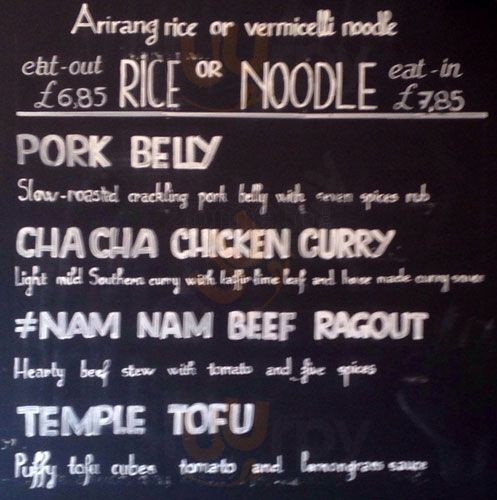 Arirang rice or vermicelli noodle
eat-out RICE OR NOODLE eat-in
£6,85 £7,85
PORK BELLY
Slow-roasted crackling pork belly with seven spices rub
CHA CHA CHICKEN CURRY
Light mild Southern curry with kaffir lime leaf and house made curry sauce
#NAM NAM BEEF RAGOUT
Hearty beef stew with tomato and five spices
TEMPLE TOFU
Puffy tofu cubes tomato and lemongrass sauce